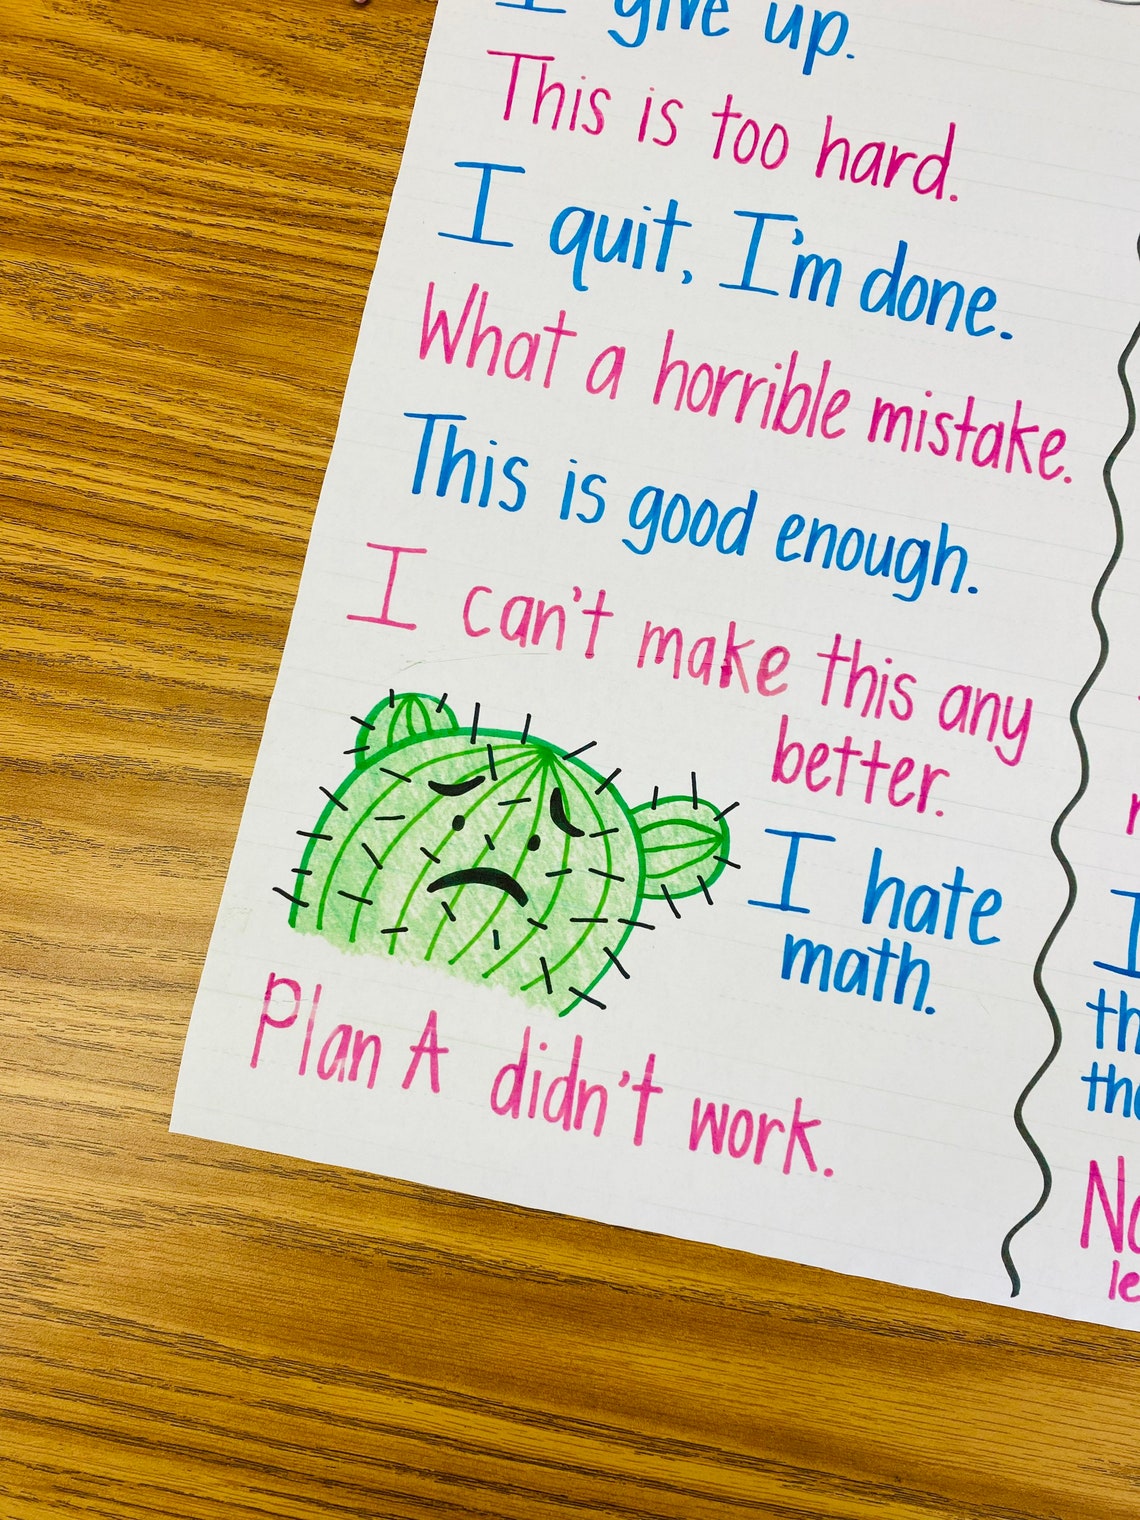 I give up.
This is too hard.
I quit, I'm done.
What a horrible mistake.
This is good enough.
I can't make this any
better.
I hate
math.
Plan A didn't work.